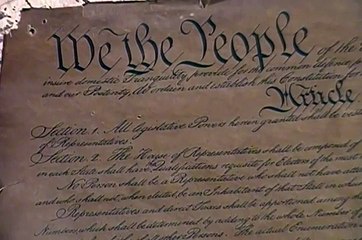 We the People of the
insure domestic Tranquility, provide for the common defence,
and our Posterity, do ordain and establish this Constitution
Article
Section 1. All legislative Powers herein granted shall be vested
of Representatives.
Section 2. The House of Representatives shall be composed of
in each State shall have Qualifications requisite for Electors of the most
No Person shall be a Representative who shall not have attained
and who shall not, when elected, be an Inhabitant of that State in which
Representatives and direct Taxes shall be apportioned among
Numbers, which shall be determined by adding to the whole Number of
other Persons. The actual Enumeration